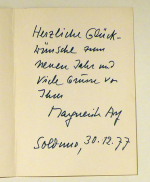 Herzliche Glück-
wünsche zum
neuen Jahr und
viele Grüsse von
Ihrer
Margherita
Solduno, 30.12.77